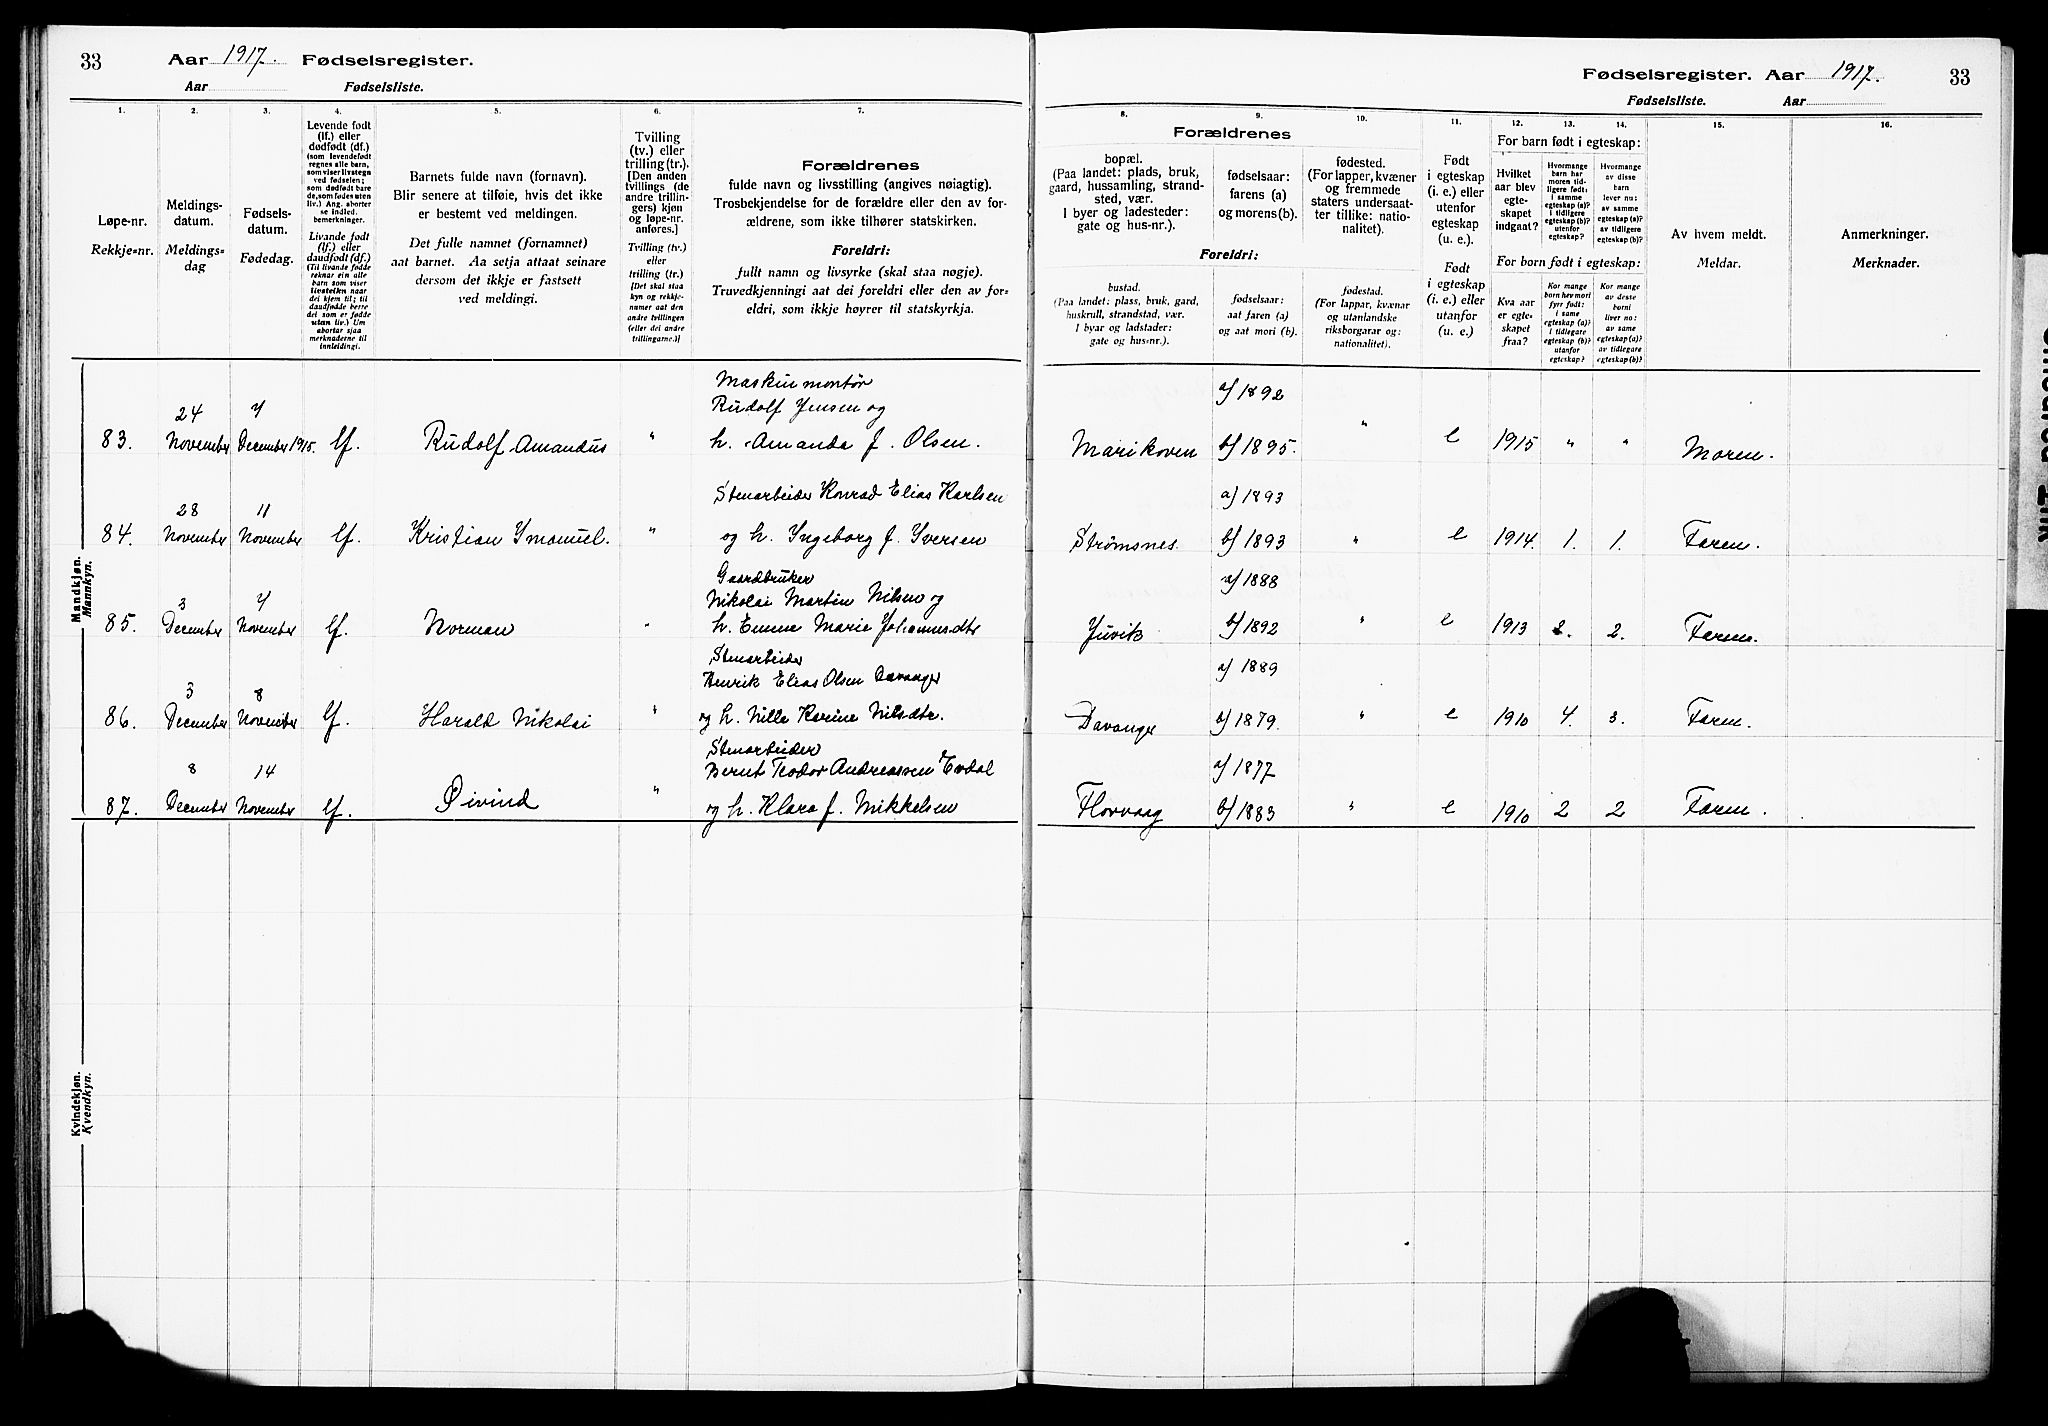 33 Aar 1917. Fødselsregister.
Aar Fødselsliste.
Fødselsregister. Aar 1917. 33
Fødselsliste. Aar
1. 2. 3. 4. 5. 6. 7.
Løpe-nr.
Rekkje=nr.
Meldings-
datum.
Meldings=
dag
Fødsels-
datum.
Fødedag.
Levende født
(lf.) eller
dødfødt (df.)
(som levendefødt
regnes alle barn,
som viser livstegn
ved fødselen;
som dødfødt bare
de, som fødes uten
liv.) Ang. aborter
se indled.
bemerkninger.
Livande født
(lf.) eller
daudfødt (df.)
(Til livande fødde
reknar ein alle
barn som viser
livsteikn naar
dei kjem til; til
daudfødde berre
dei som er fødde
utan liv.) Um
abortar sjaa
merknaderne til
innleidingi.
Barnets fulde navn (fornavn).
Blir senere at tilføie, hvis det ikke
er bestemt ved meldingen.
Det fulle namnet (fornamnet)
aat barnet. Aa setja attaat seinare
dersom det ikkje er fastsett
ved meldingi.
Tvilling
(tv.) eller
trilling (tr.).
[Den anden
tvillings (de
andre trillin-
gers) kjøn
og løpe-nr.
anføres.]
Tvilling (tv.)
eller
trilling (tr.)
[Det skal staa
kyn og rekkje-
numer aat den
andre tvillingen
(eller dei andre
trillingarne.)]
Forældrenes
fulde navn og livsstilling (angives nøiagtig).
Trosbekjendelse for de forældre eller den av for-
ældrene, som ikke tilhører statskirken.
Foreldri:
fullt namn og livsyrke (skal staa nøgje).
Truvedkjenningi aat dei foreldri eller den av for-
eldri, som ikkje høyrer til statskyrkja.
8. 9. 10. 11. 12. 13. 14. 15. 16.
Forældrenes
bopæl.
(Paa landet: plads, bruk,
gaard, hussamling, strand-
sted, vær.
I byer og ladesteder:
gate og hus-nr.).
fødselsaar:
farens (a)
og morens (b).
fødested.
(For lapper, kvæner
og fremmede
staters undersaat-
ter tillike: natio-
nalitet).
Foreldri:
bustad.
(Paa landet: plass, bruk, gard,
huskrull, strandstad, vær.
I byar og ladstader:
gate og hus=nr.).
fødselsaar:
aat faren (a)
og aat mori (b).
fødestad.
(For lappar, kvænar
og utanlandske
riksborgarar og:
nationalitet).
Født
i egteskap
(i. e.) eller
utenfor
egteskap
(u. e.).
Født
i egteskap
(i. e.) eller
utanfor
(u. e.)
For barn født i egteskap:
Hvilket
aar blev
egte-
skapet
indgaat?
Hvormange
barn har
moren tid-
ligere født:
i samme
egteskap (a)?
i tidligere
egteskap (b)?
utenfor
egteskap?
Hvormange
av disse
barn
lever nu:
av samme
egteskap (a)?
av tidligere
egteskap (b)?
For born født i egteskap:
Kva aar
er egte-
skapet
fraa?
Kor mange
born hev mori
fyrr født:
i same
egteskap (a)?
i tidlegare
egteskap (b)?
utanfor
egteskap?
Kor mange
av deste
borni
liver no:
av same
egteskap (a)?
av tidlegare
egteskap (b)?
Av hvem meldt.
Meldar.
Anmerkninger.
Merknader.
Mandkjøn.
Mannkyn.
Maskinmontør
24 7 Rudolf Jensen og a/ 1892
83. November December 1915. lf. Rudolf Amandus " h. Amanda f. Olsen. Marikoven b/ 1895. " e 1915 " " Moren.
28 11 Stenarbeider Konrad Elias Karlsen a/ 1893
84. November November lf. Kristian Imanuel. " og h. Ingeborg f. Iversen Strømsnes. b/ 1893 " e 1914. 1. 1. Faren.
Gaardbruker a/ 1888
3 7 Nikolai Martin Nilsen og
85. December November lf. Norman " h. Emma Marie Johannesdtr Juvik b/ 1892 " e 1913 2. 2. Faren.
Stenarbeider a/ 1889
3 8 Henrik Elias Olsen Davanger
86. December November lf. Harald Nikolai " og h. Nille Karine Nilsdtr. Davanger b/ 1879. " e 1910 4. 3. Faren.
Stenarbeider
8 14 Bernt Teodor Andreassen Evdal a/ 1877
87. December November lf. Øivind " og h. Klara f. Mikkelsen Florvaag b/ 1883 " e 1910 2 2 Faren.
Kvindekjøn.
Kvendkyn.